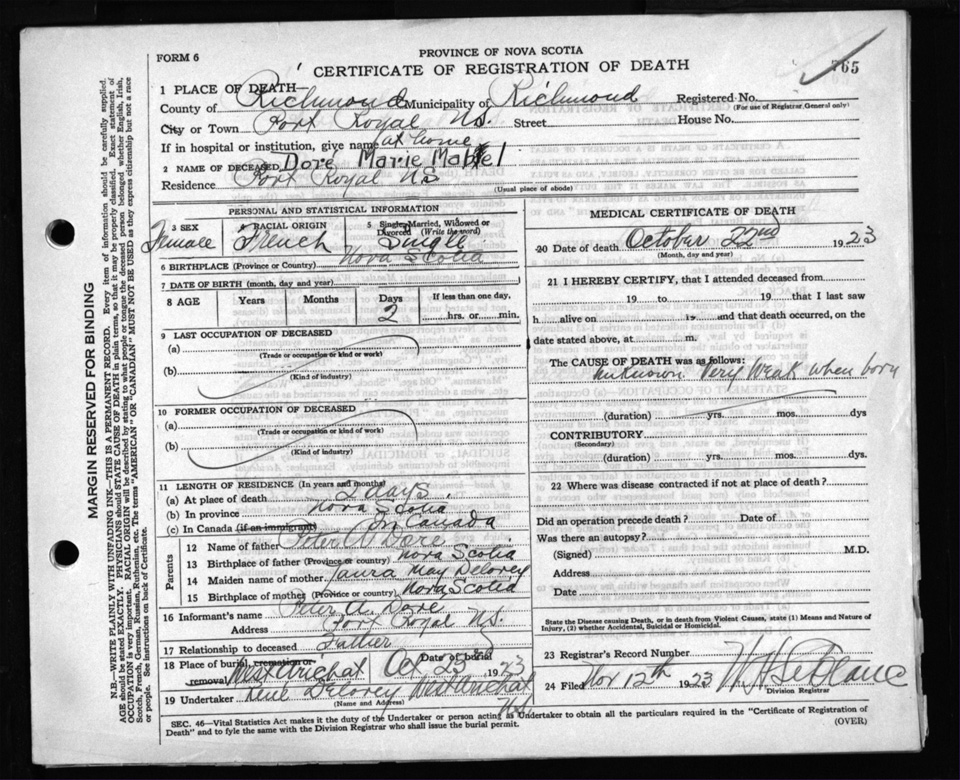 FORM 6
PROVINCE OF NOVA SCOTIA
CERTIFICATE OF REGISTRATION OF DEATH
765
1 PLACE OF DEATH—
County of Richmond Municipality of Richmond Registered No.
(For use of Registrar General only)
City or Town Port Royal N.S. Street House No.
If in hospital or institution, give name at home
2 NAME OF DECEASED Dore Marie Mabel
Residence Port Royal NS
(Usual place of abode)
PERSONAL AND STATISTICAL INFORMATION
3 SEX Female
4 RACIAL ORIGIN French
5 Single, Married, Widowed or Divorced (Write the word) Single
6 BIRTHPLACE (Province or Country) Nova Scotia
7 DATE OF BIRTH (month, day and year)
8 AGE Years Months Days If less than one day,
2 hrs. or min.
9 LAST OCCUPATION OF DECEASED
(a)
(Trade or occupation or kind of work)
(b)
(Kind of industry)
10 FORMER OCCUPATION OF DECEASED
(a)
(Trade or occupation or kind of work)
(b)
(Kind of industry)
11 LENGTH OF RESIDENCE (In years and months)
(a) At place of death 2 days.
(b) In province Nova Scotia
(c) In Canada (if an immigrant) In Canada
Parents
12 Name of father Peter A Dore
13 Birthplace of father (Province or country) Nova Scotia
14 Maiden name of mother Laura May Delorey
15 Birthplace of mother (Province or country) Nova Scotia
16 Informant's name Peter A. Dore
Address Port Royal N.S.
17 Relationship to deceased Father
18 Place of burial, cremation or removal West Arichat Date of burial Oct 23 1923
19 Undertaker Rene Delorey West Arichat
(Name and Address) N.S.
MEDICAL CERTIFICATE OF DEATH
20 Date of death October 22nd 1923
(Month, day and year)
21 I HEREBY CERTIFY, that I attended deceased from
19 to 19 that I last saw
h alive on 19 and that death occurred, on
date stated above, at m.
The CAUSE OF DEATH was as follows:
unknown Very Weak when born
(duration) yrs. mos. dys
CONTRIBUTORY
(Secondary)
(duration) yrs. mos. dys.
22 Where was disease contracted if not at place of death?
Did an operation precede death? Date of
Was there an autopsy?
(Signed) M.D.
Address
Date
State the Disease causing Death, or in death from Violent Causes, state (1) Means and Nature
of Injury, (2) whether Accidental, Suicidal or Homicidal.
23 Registrar's Record Number
24 Filed Nov 12th 1923
Division Registrar
SEC. 46—Vital Statistics Act makes it the duty of the Undertaker or person acting as Undertaker to obtain all the particulars required in the "Certificate of Registration of
Death" and to fyle the same with the Division Registrar who shall issue the burial permit.
(OVER)
MARGIN RESERVED FOR BINDING
N.B.—WRITE PLAINLY WITH UNFADING INK—THIS IS A PERMANENT RECORD. Every item of information should be carefully supplied.
AGE should be stated EXACTLY. PHYSICIANS should STATE CAUSE OF DEATH in plain terms, so that it may be properly classified. Exact statement of
OCCUPATION is very important. RACIAL ORIGIN will be described by stating to what people or tongue the deceased person belonged whether English, Irish,
Scotch, French, German, Russian, Ruthenian, etc. The terms "AMERICAN" OR "CANADIAN" MUST NOT BE USED as they express citizenship but not a race
or people. See instructions on back of Certificate.